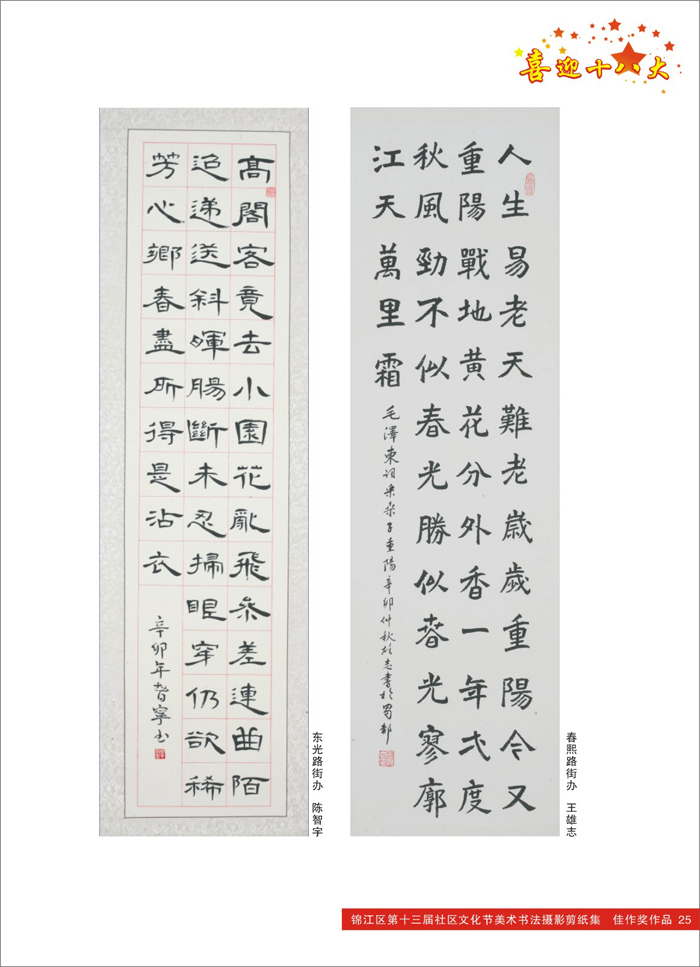 喜迎十八大
高閣客竟去小園花亂飛參差連曲陌
迢遞送斜暉腸斷未忍掃眼穿仍欲稀
芳心鄉春盡所得是沾衣
辛卯年智寧书
东光路街办 陈智宇
人生易老天難老歳歲重陽今又
重陽戰地黄花分外香一年弌度
秋風勁不似春光勝似春光寥廓
江天萬里霜
毛澤東词采桑子重陽辛卯仲秋雄志書於蜀都
春熙路街办 王雄志
锦江区第十三届社区文化节美术书法摄影剪纸集 佳作奖作品 25